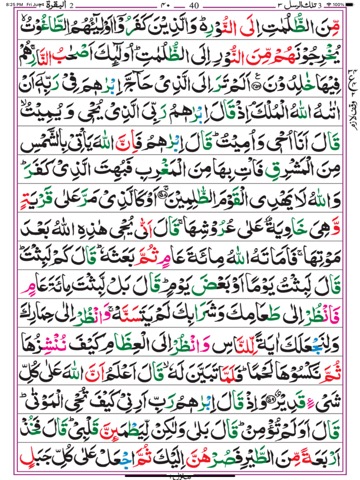 8:25 PM Fri
البقرة 2
٣٠
40
تلك الرسل ٣
100%
مِّنَ الظُّلُمٰتِ اِلَى النُّوْرِ ؕ وَالَّذِيْنَ كَفَرُوْۤا اَوْلِيٰٓـُٔهُمُ الطَّاغُوْتُ ۙ
يُخْرِجُوْنَهُمْ مِّنَ النُّوْرِ اِلَى الظُّلُمٰتِ ؕ اُولٰٓئِكَ اَصْحٰبُ النَّارِ ۚ هُمْ
فِيْهَا خٰلِدُوْنَ ۟ اَلَمْ تَرَ اِلَى الَّذِيْ حَآجَّ اِبْرٰهٖمَ فِيْ رَبِّهٖۤ اَنْ
اٰتٰىهُ اللّٰهُ الْمُلْكَ ۘ اِذْ قَالَ اِبْرٰهٖمُ رَبِّيَ الَّذِيْ يُحْيٖ وَيُمِيْتُ ۙ
قَالَ اَنَا اُحْيٖ وَاُمِيْتُ ؕ قَالَ اِبْرٰهٖمُ فَاِنَّ اللّٰهَ يَاْتِيْ بِالشَّمْسِ
مِنَ الْمَشْرِقِ فَاْتِ بِهَا مِنَ الْمَغْرِبِ فَبُهِتَ الَّذِيْ كَفَرَ ؕ
وَاللّٰهُ لَا يَهْدِي الْقَوْمَ الظّٰلِمِيْنَ ۟ اَوْ كَالَّذِيْ مَرَّ عَلٰى قَرْيَةٍ
وَّهِيَ خَاوِيَةٌ عَلٰى عُرُوْشِهَا ۚ قَالَ اَنّٰى يُحْيٖ هٰذِهِ اللّٰهُ بَعْدَ
مَوْتِهَا ۚ فَاَمَاتَهُ اللّٰهُ مِائَةَ عَامٍ ثُمَّ بَعَثَهٗ ؕ قَالَ كَمْ لَبِثْتَ ؕ
قَالَ لَبِثْتُ يَوْمًا اَوْ بَعْضَ يَوْمٍ ؕ قَالَ بَلْ لَّبِثْتَ مِائَةَ عَامٍ
فَانْظُرْ اِلٰى طَعَامِكَ وَشَرَابِكَ لَمْ يَتَسَنَّهْ ۚ وَانْظُرْ اِلٰى حِمَارِكَ
وَلِنَجْعَلَكَ اٰيَةً لِّلنَّاسِ وَانْظُرْ اِلَى الْعِظَامِ كَيْفَ نُنْشِزُهَا
ثُمَّ نَكْسُوْهَا لَحْمًا ؕ فَلَمَّا تَبَيَّنَ لَهٗ ۙ قَالَ اَعْلَمُ اَنَّ اللّٰهَ عَلٰى كُلِّ
شَيْءٍ قَدِيْرٌ ۟ وَاِذْ قَالَ اِبْرٰهٖمُ رَبِّ اَرِنِيْ كَيْفَ تُحْيِ الْمَوْتٰى ؕ
قَالَ اَوَلَمْ تُؤْمِنْ ؕ قَالَ بَلٰى وَلٰكِنْ لِّيَطْمَئِنَّ قَلْبِيْ ؕ قَالَ فَخُذْ
اَرْبَعَةً مِّنَ الطَّيْرِ فَصُرْهُنَّ اِلَيْكَ ثُمَّ اجْعَلْ عَلٰى كُلِّ جَبَلٍ